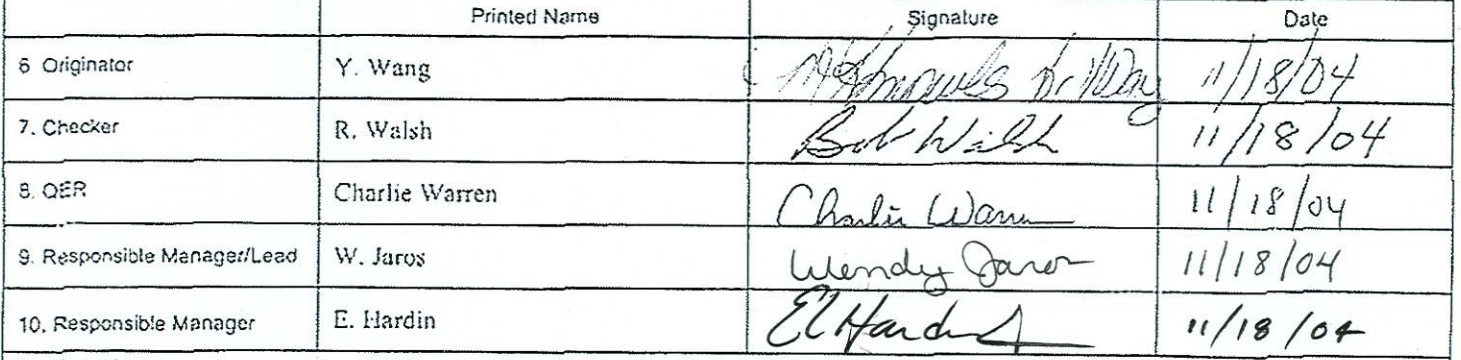 Printed Name Signature Date
6 Originator Y. Wang 11/18/04
7. Checker R. Walsh Bob Walsh 11/18/04
8. QER Charlie Warren Charlie Warren 11/18/04
9. Responsible Manager/Lead W. Jaros Wendy Jaros 11/18/04
10. Responsible Manager E. Hardin El Hardin 11/18/04